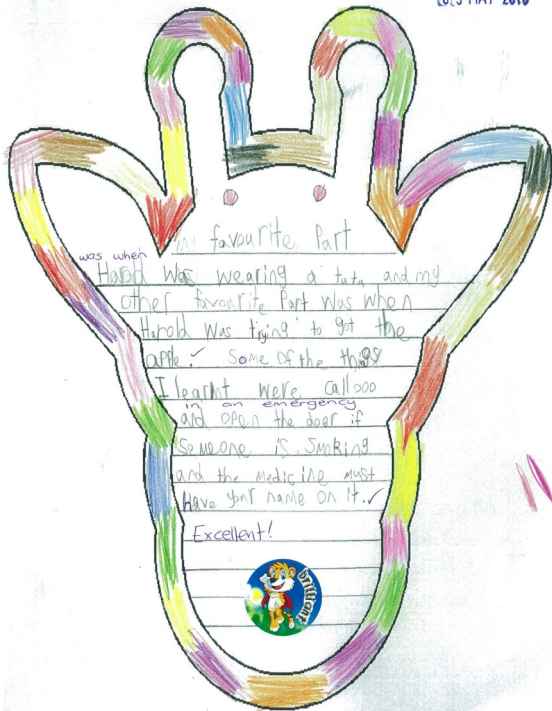 MAY 2010
my favourite Part
was when
Harold was wearing a tutu and my
other favourite Part was when
Harold was trying to got the
apple ✓ Some of the things
I learnt were call 000
in an emergency
and open the door if
someone is smoking
and the medicine must
Have your name on it. ✓
Excellent!
brilliant